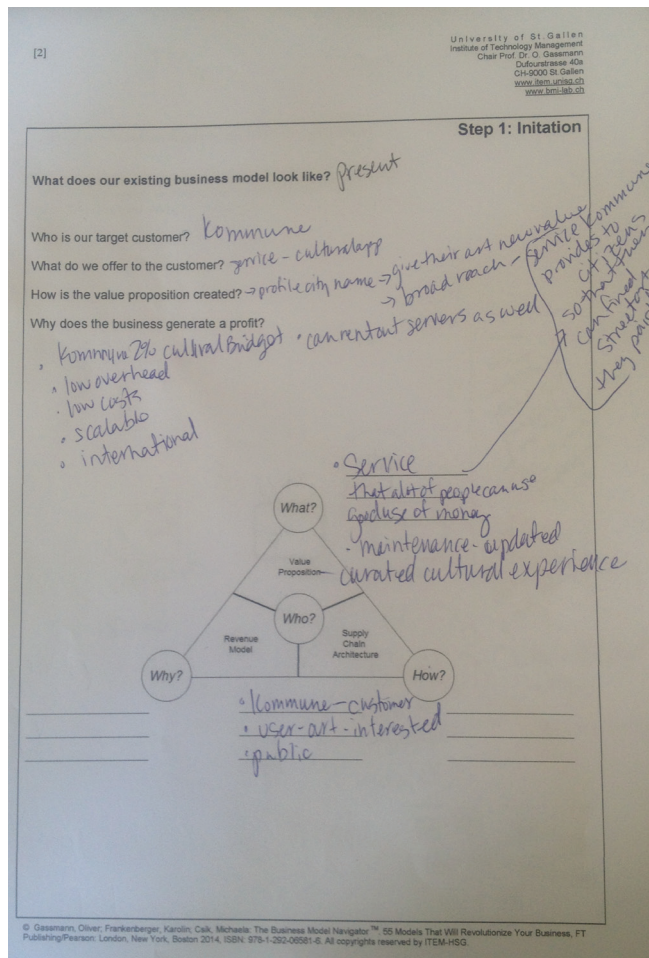 [2]
University of St.Gallen
Institute of Technology Management
Chair Prof. Dr. O. Gassmann
Dufourstrasse 40a
CH-9000 St.Gallen
www.item.unisg.ch
www.bmi-lab.ch
Step 1: Initation
What does our existing business model look like? Present
Who is our target customer? Kommune
What do we offer to the customer? service - cultural app
How is the value proposition created? → profile city name → give their art new value
→ broad reach -
service Kommune
provides to
citizens
so that they
can find
Streetart
they
Why does the business generate a profit?
• Kommune 2% cultural Bridget • can rent out servers as well
• low overhead
• low costs
• scalable
• international
• Service
that alot of people can use
good use of money
• maintenance - updated
curated cultural experience
What?
Value
Proposition
Who?
Revenue
Model
Supply
Chain
Architecture
Why?
How?
• Kommune - customer
• user - art - interested
• public
© Gassmann, Oliver, Frankenberger, Karolin, Csik, Michaela: The Business Model Navigator™. 55 Models That Will Revolutionize Your Business, FT
Publishing/Pearson: London, New York, Boston 2014, ISBN: 978-1-292-06581-6. All copyrights reserved by ITEM-HSG.